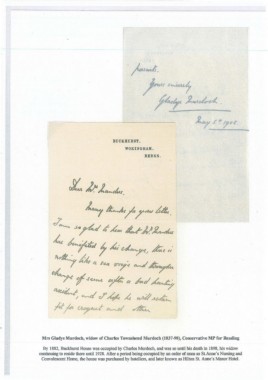 Yours sincerely
Gladys Murdoch.
May 1st 1905
BUCKHURST,
WOKINGHAM,
BERKS.
Dear Mr
Many thanks for your letter.
I am so glad to hear that Mr
has benefited by his change, there is
nothing like a sea voyage and thorough
change of scene after a bad hunting
accident, and I hope he will return
fit for croquet and other
Mrs Gladys Murdoch, widow of Charles Townshend Murdoch (1837-98), Conservative MP for Reading
By 1892, Buckhurst House was occupied by Charles Murdoch, and was so until his death in 1898, his widow
continuing to reside there until 1918. After a period being occupied by an order of nuns as St Anne's Nursing and
Convalescent Home, the house was purchased by hoteliers, and later known as Hilton St. Anne's Manor Hotel.